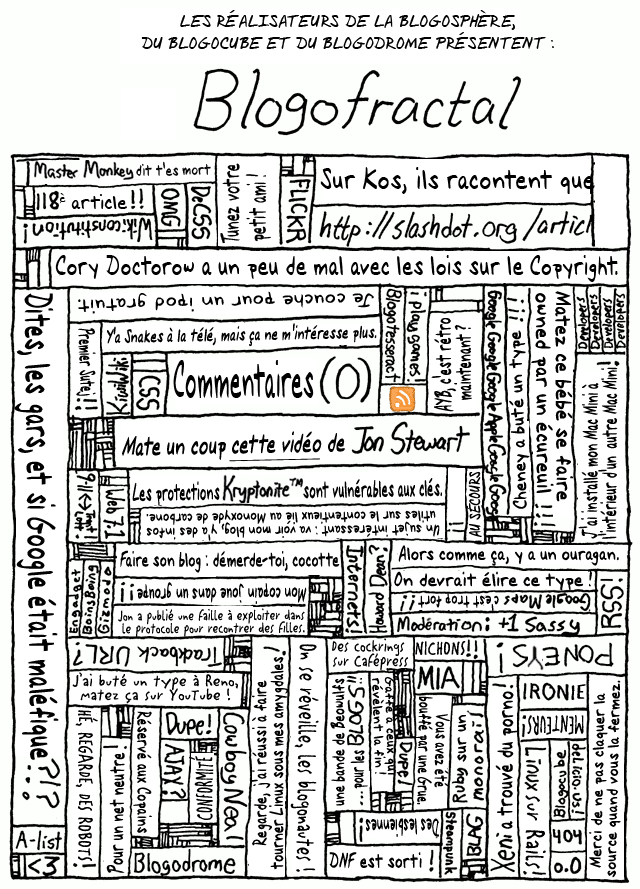 LES RÉALISATEURS DE LA BLOGOSPHÈRE,
DU BLOGOCUBE ET DU BLOGODROME PRÉSENTENT :
Blogofractal
Master Monkey dit t'es mort
118e article !!
Wikiconstitution!
OMG
DeCSS
Tunez votre
petit ami !
FLICKR
Sur Kos, ils racontent que
http://slashdot.org/articl
Cory Doctorow a un peu de mal avec les lois sur le Copyright.
Dites, les gars, et si Google était maléfique?!?
Je couche pour un ipod gratuit.
Premier Sutej!!
Y'a Snakes à la télé, mais ça ne m'intéresse plus.
KiwiWiki
CSS
Commentaires (0)
Blogotesseract
¡ play games!
AYB, c'est rétro
maintenant ?
Google Google Google Apple Google Google
Cheney a buté un type !!!
owned par un écureuil !!!
Matez ce bébé se faire
Developers
Developers
Developers
Developers
J'ai installé mon Mac Mini à
l'intérieur d'un autre Mac Mini!
Mate un coup cette vidéo de Jon Stewart
Web 7.1
Les protections Kryptonite™ sont vulnérables aux clés.
Un sujet intéressant : va voir mon blog, y'a des infos
utiles sur le contentieux lié au Monoxyde de carbone.
AU SECOURS
Engadget
BoingBoing
Gizmodo
Faire son blog : démerde-toi, cocotte
Mon copain joue dans un groupe!!
Jon a publié une faille à exploiter dans
le protocole pour recontrer des filles.
Internets!
Howard Dean?
Alors comme ça, y a un ouragan.
On devrait élire ce type !
Google Maps c'est trop fort!!
Modération: +1 Sassy
RSS!
Trackback URL?
J'ai buté un type à Reno,
matez ça sur YouTube !
HÉ, REGARDE, DES ROBOTS!
Pour un net neutre!
Réservé aux Copains
Dupe!
AJAX?
CONFORMITÉ
Cowboy Neal
Blogodrome
Regarde, j'ai réussi à faire
tourner Linux sous mes amygdales!
On se réveille, les blogonautes !
Des cockrings
sur Cafépress
NICHONS!!
une bande de Beowulfs
... pour les BLOGS!!!
Gratte à ceux qui
révèlent la fin !
Dupe!
MIA
Vous avez été
bouffé par une Grue.
Ruby sur un
monorail
Des lesbiennes!
Steampunk
BLAG
DNF est sorti !
PONEYS!
Xeni a trouvé du porno!
IRONIE
MENTEURS!
Linux sur Rail!
Blogocube
del.icio.us!
404
0.0
Merci de ne pas claquer la
source quand vous la fermez.
A-list
<3